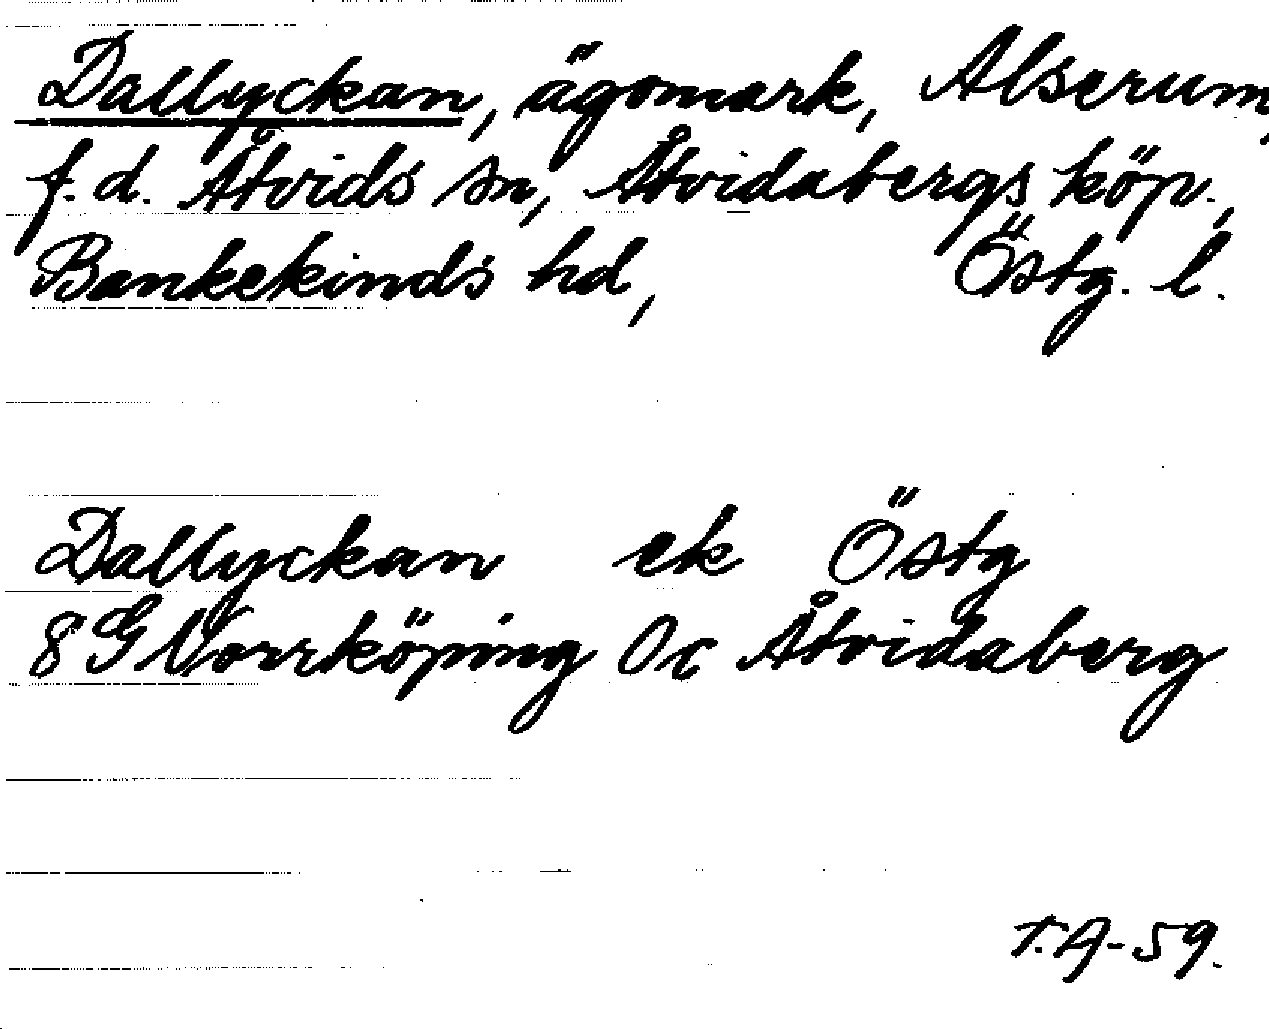 Dallyckan, ägomark, Alserum,
f.d. Åtvids sn, Åtvidabergs köp.,
Bankekinds hd, Östg. l.
Dallyckan ek Östg
8G Norrköping 0c Åtvidaberg
T.A-59.